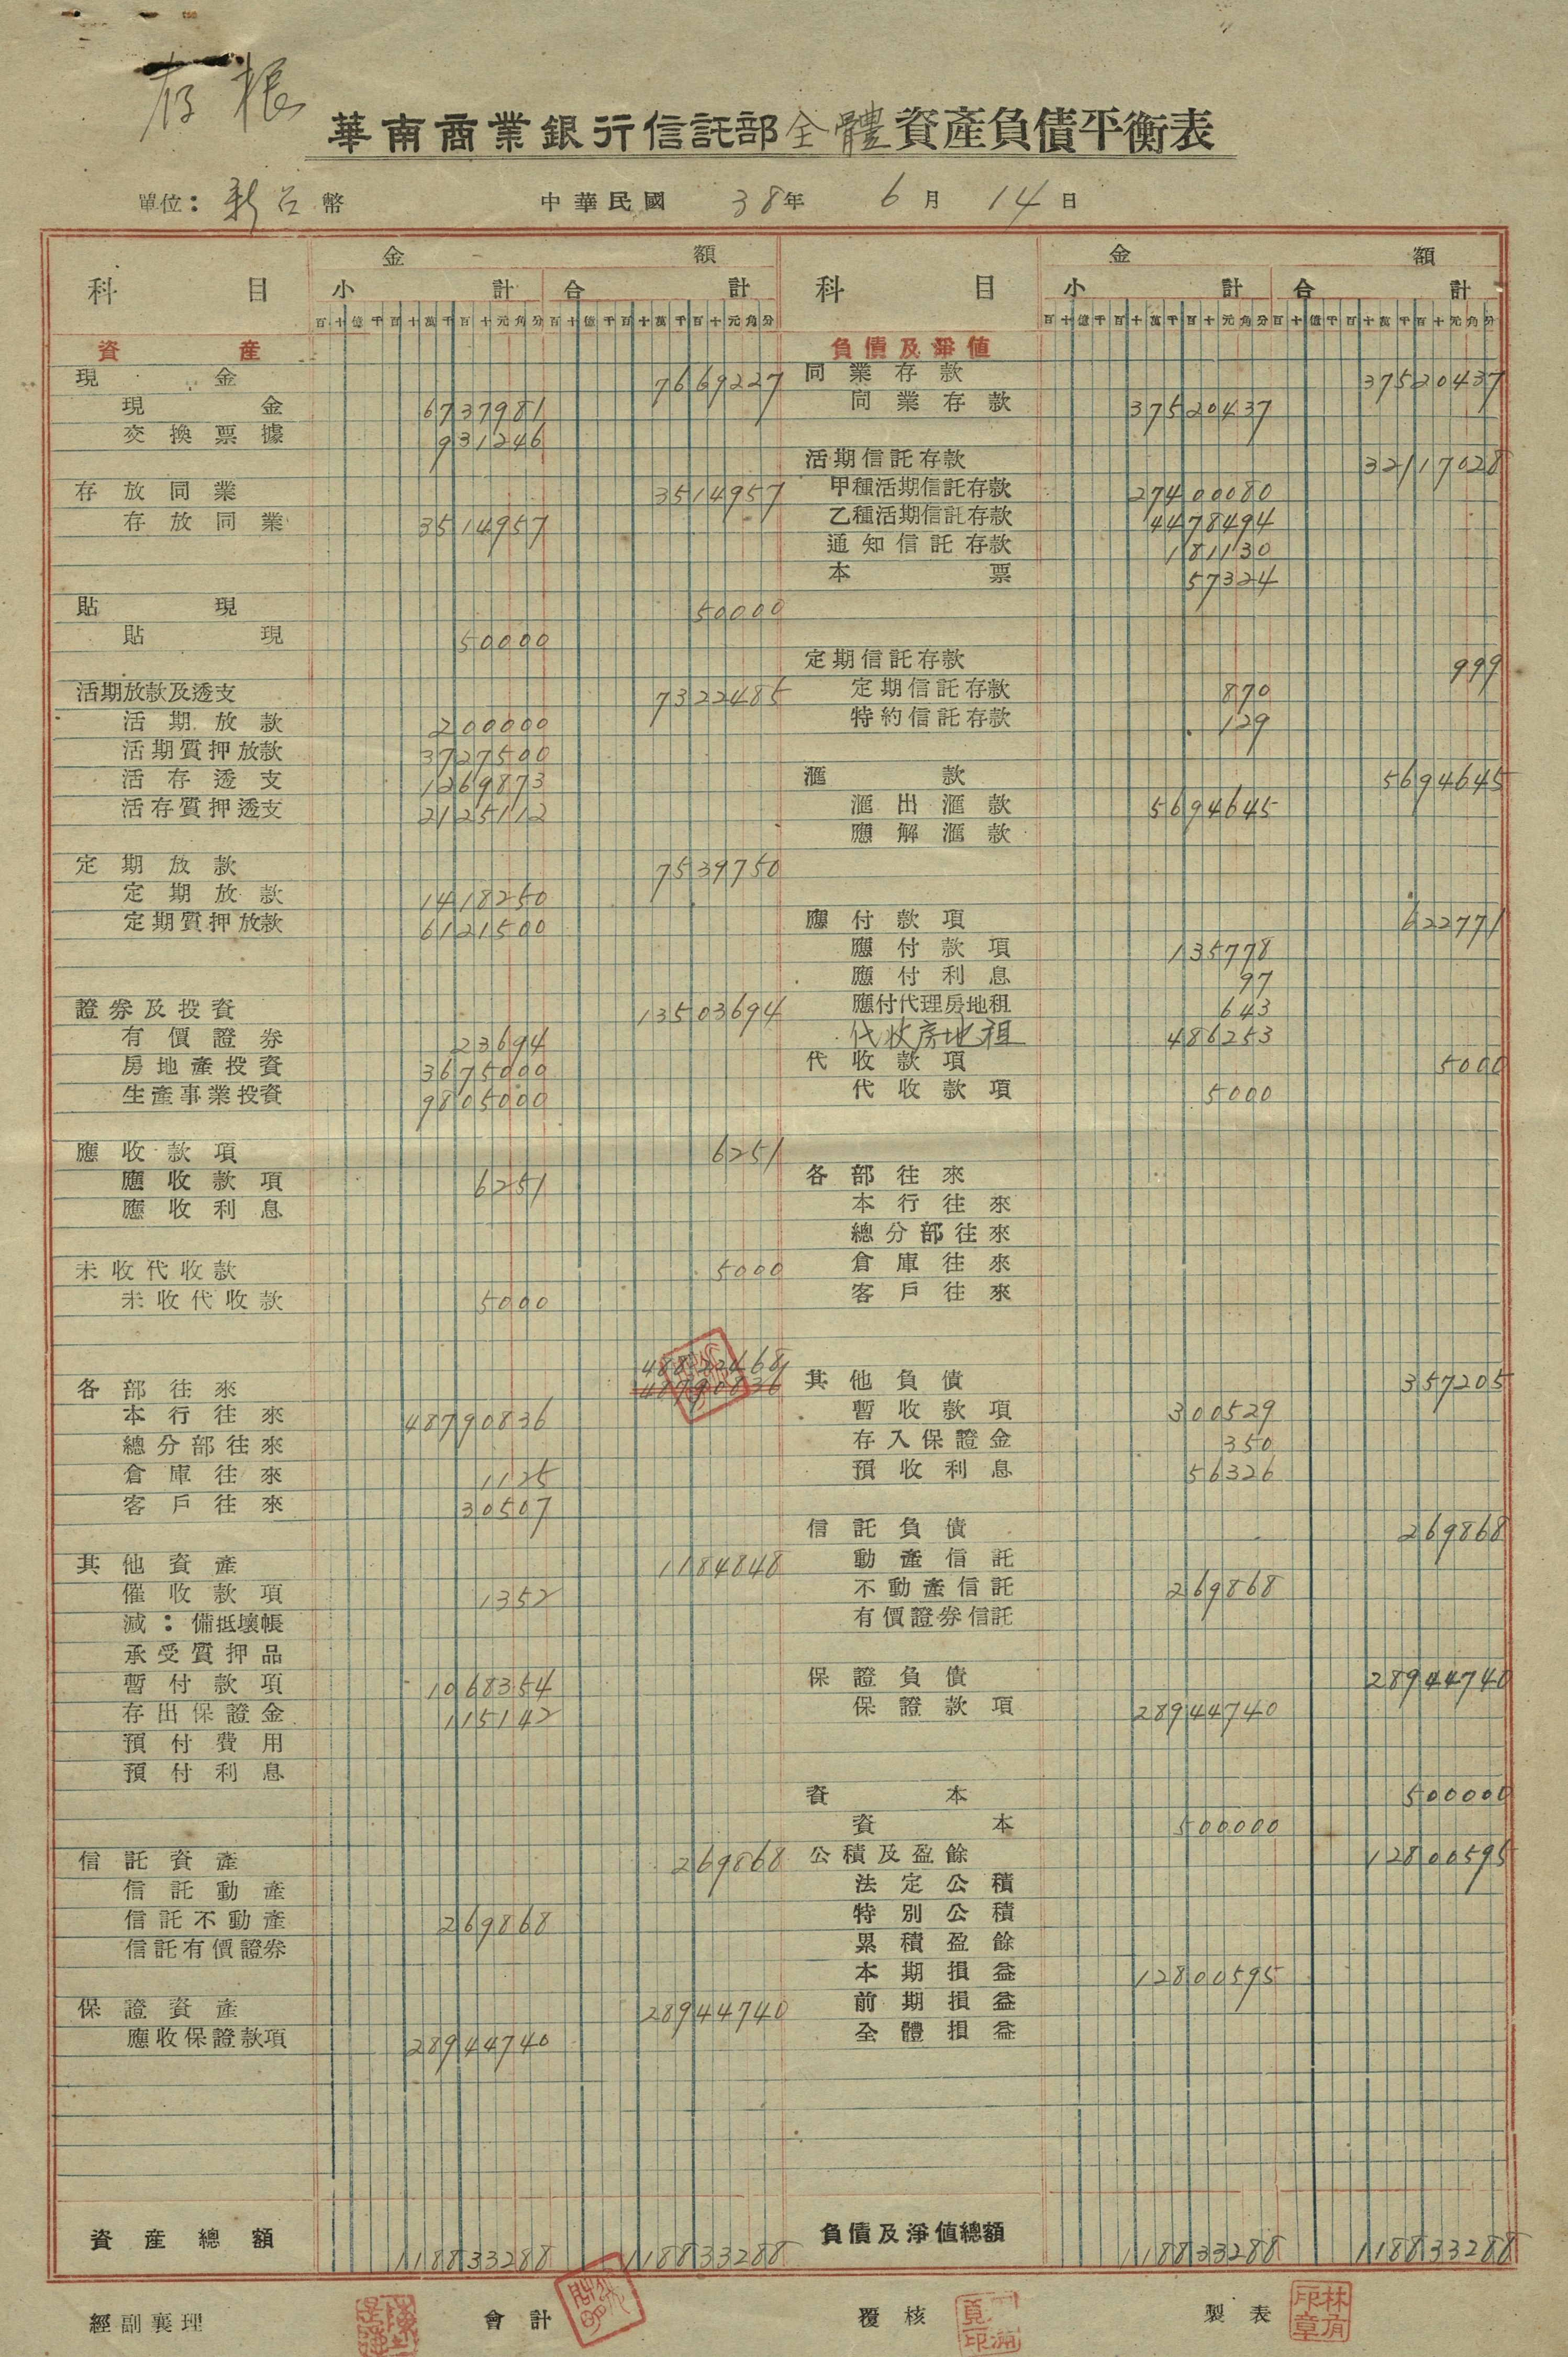 存根
華南商業銀行信託部全體資產負債平衡表
單位：新台幣 中華民國 38年 6月 14日
科目 金額 科目 金額
小計 合計 小計 合計
百十億千百十萬千百十元角分 百十億千百十萬千百十元角分 百十億千百十萬千百十元角分 百十億千百十萬千百十元角分
資產
現金 7669227
現金 6737981
交換票據 931246
存放同業 3514957
存放同業 3514957
貼現 50000
貼現 50000
活期放款及透支 7322485
活期放款 200000
活期質押放款 3727500
活存透支 1269873
活存質押透支 2125112
定期放款 7539750
定期放款 1418250
定期質押放款 6121500
證券及投資 13503694
有價證券 23694
房地產投資 3675000
生產事業投資 9805000
應收款項 6251
應收款項 6251
應收利息
未收代收款 5000
未收代收款 5000
48822468
各部往來 48790836
本行往來 48790836
總分部往來
倉庫往來 1125
客戶往來 30507
其他資產 1184848
催收款項 1352
減：備抵壞帳
承受質押品
暫付款項 1068354
存出保證金 115142
預付費用
預付利息
信託資產 269868
信託動產
信託不動產 269868
信託有價證券
保證資產 28944740
應收保證款項 28944740
資產總額 118833288 118833288
負債及淨值
同業存款 37520437
同業存款 37520437
活期信託存款 32117028
甲種活期信託存款 27400080
乙種活期信託存款 4478494
通知信託存款 181130
本票 57324
定期信託存款 999
定期信託存款 870
特約信託存款 129
滙款 5694645
滙出滙款 5694645
應解滙款
應付款項 622771
應付款項 135778
應付利息 97
應付代理房地租 643
代收房地租 486253
代收款項 5000
代收款項 5000
各部往來
本行往來
總分部往來
倉庫往來
客戶往來
其他負債 357205
暫收款項 300529
存入保證金 350
預收利息 56326
信託負債 269868
動產信託
不動產信託 269868
有價證券信託
保證負債 28944740
保證款項 28944740
資本 500000
資本 500000
公積及盈餘 12800595
法定公積
特別公積
累積盈餘
本期損益 12800595
前期損益
全體損益
負債及淨值總額 118833288 118833288
經副襄理 會計 覆核 製表